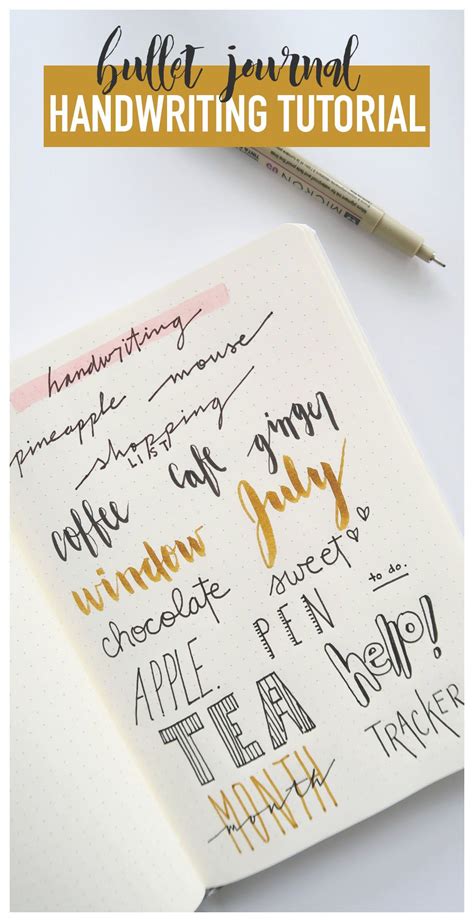 bullet journal
HANDWRITING TUTORIAL
MICRON 05
handwriting
pineapple mouse
shopping
LIST
coffee cafe ginger
window July
chocolate sweet
to do.
APPLE. PEN
TEA hello!
MONTH
month
TRACKER